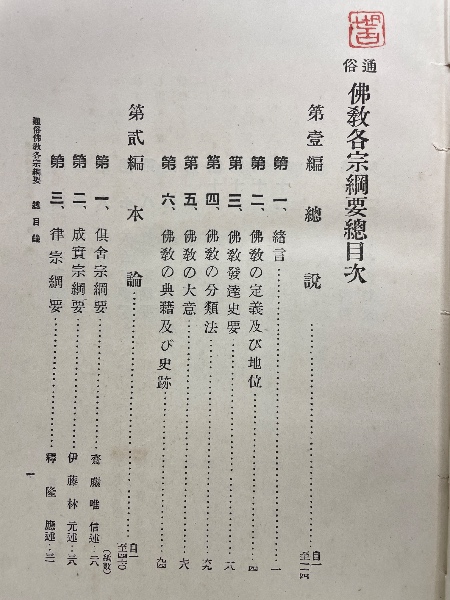 通俗 佛敎各宗綱要總目次
第壹編 總說……自一至二四
第一、緖言……一
第二、佛敎の定義及び地位……四
第三、佛敎發達史要……
第四、佛敎の分類法……
第五、佛敎の大意……
第六、佛敎の典籍及び史跡……
第貳編 本論……自一至
第一、俱舍宗綱要……齋藤唯信述…
第二、成實宗綱要……伊藤林元述…
第三、律宗綱要……釋隆應述…
通俗佛敎各宗綱要 總目錄
一